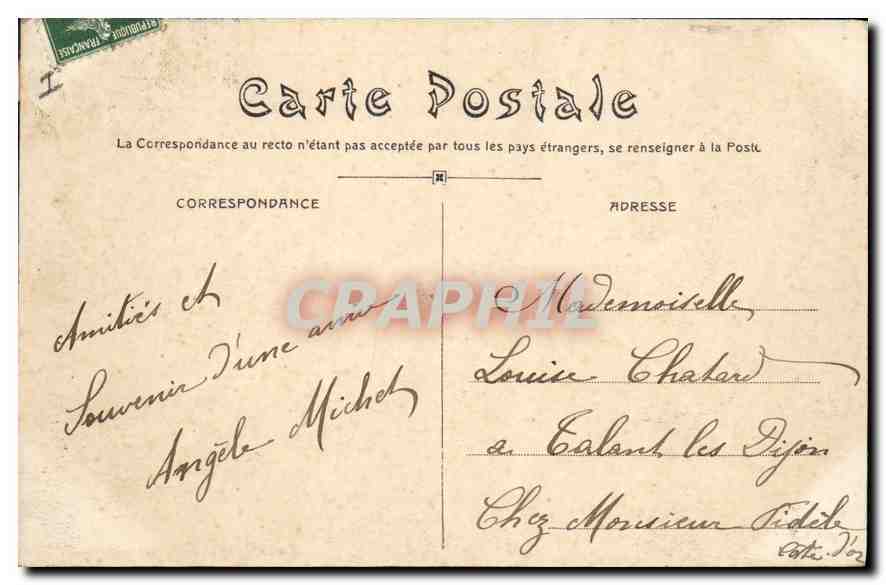 REPUBLIQUE
FRANÇAISE
I
Carte Postale
La Correspondance au recto n'étant pas acceptée par tous les pays étrangers, se renseigner à la Poste
CORRESPONDANCE
Amitiés et
Souvenir d'une amie
Angèle Michel
ADRESSE
Mademoiselle
Louise Chatard
a Talant les Dijon
Chez Monsieur Fidèle
Cote d'or
CRAPHIL